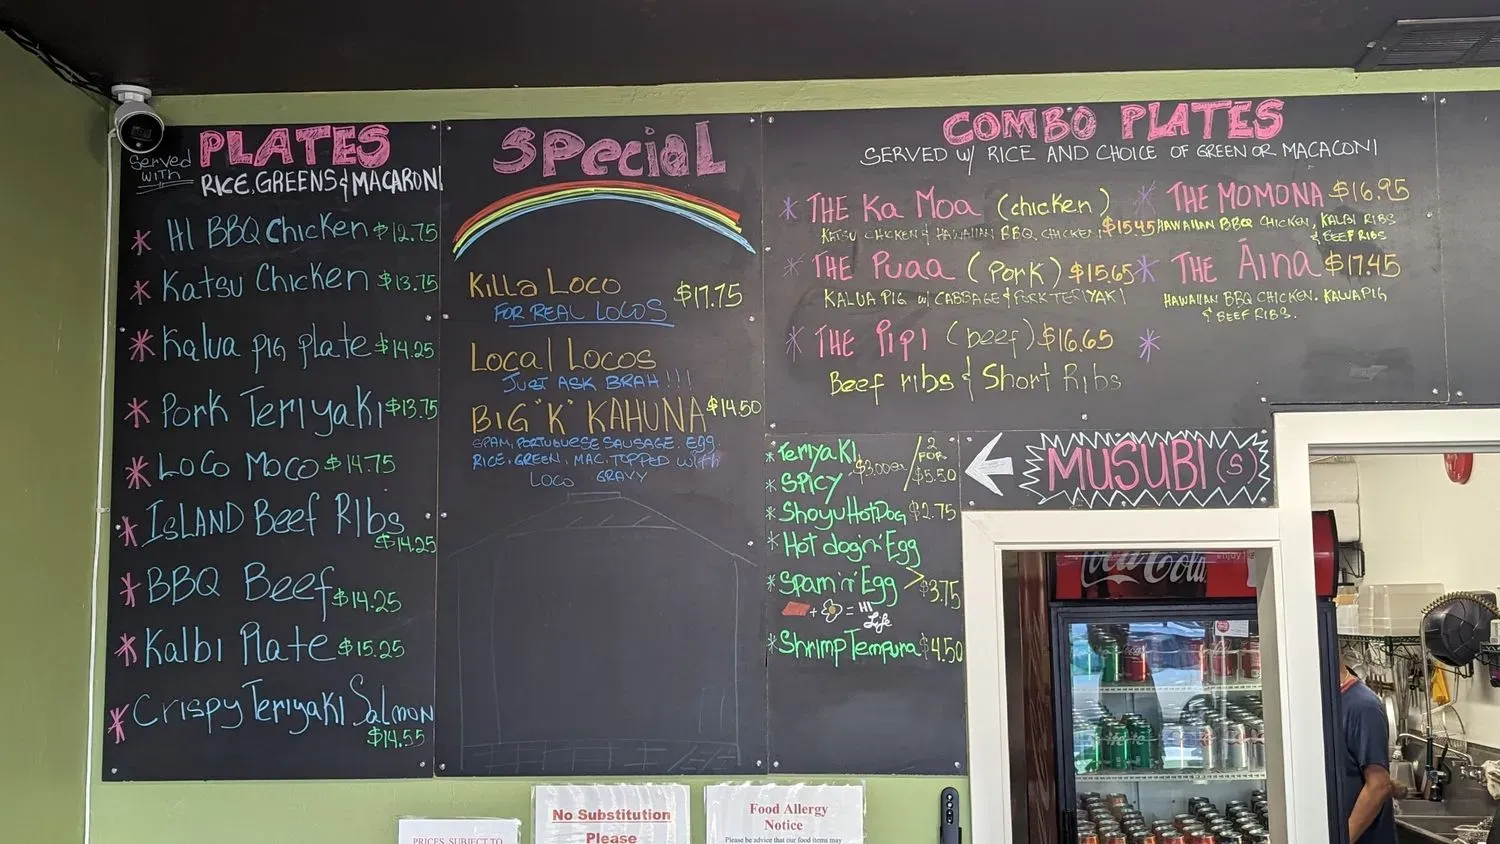 Served
with
PLATES
RICE, GREENS & MACARONI
* HI BBQ Chicken $12.75
* Katsu Chicken $13.75
* Kalua pig plate $14.25
* Pork Teriyaki $13.75
* Loco Moco $14.75
* Island Beef Ribs
$14.25
* BBQ Beef $14.25
* Kalbi Plate $15.25
* Crispy Teriyaki Salmon
$14.55
Special
Killa Loco $17.75
FOR REAL LOCOS
Local Locos
JUST ASK BRAH!!!
BIG "K" KAHUNA $14.50
SPAM, PORTUGUESE SAUSAGE. Egg
RICE, GREEN, MAC, TOPPED with
LOCO GRAVY
COMBO PLATES
SERVED W/ RICE AND CHOICE OF GREEN OR MACACONI
* THE Ka Moa (chicken)
KATSU CHICKEN & HAWAIIAN BBQ CHICKEN $15.45
* THE Puaa (Pork) $15.65
KALUA PIG w/ CABBAGE & PORK TERIYAKI
* THE Pipi (beef) $16.65
Beef ribs & Short Ribs
* THE MOMONA $16.95
HAWAIIAN BBQ CHICKEN, KALBI RIBS
& BEEF RIBS
* THE Āina $17.45
HAWAIIAN BBQ CHICKEN. KALUA PIG
& BEEF RIBS.
*
* Teriyaki
* SPICY
$3.00ea / 2 FOR $5.50
* Shoyu HotDog $2.75
* Hot dog 'n' Egg
* Spam 'n' Egg > $3.75
+ = HI Life
* Shrimp Tempura $4.50
MUSUBI(S)
Coca-Cola
enjoy
No Substitution
Please
Food Allergy
Notice
Please be advice that our food items may
PRICES SUBJECT TO